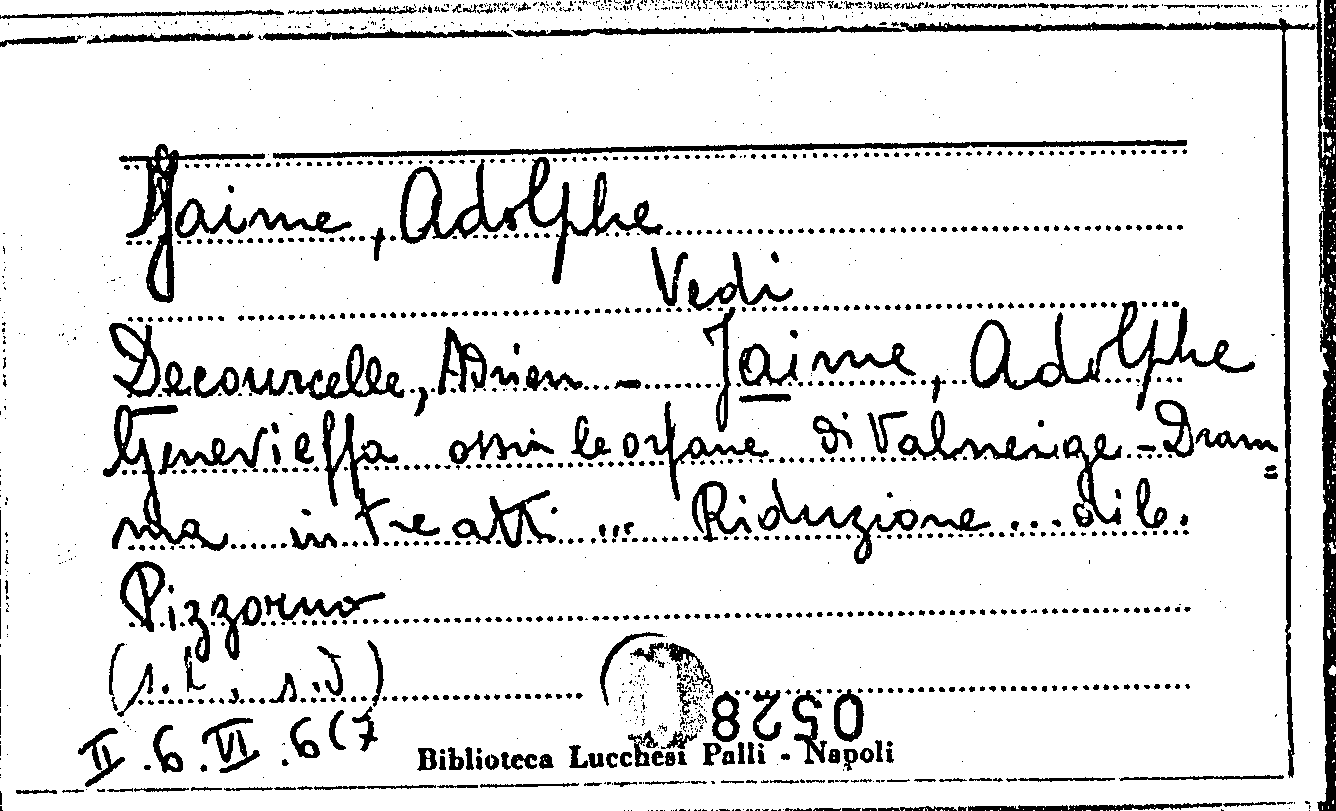 Jaime, Adolphe
Vedi
Decourcelle, Adrien - Jaime, Adolphe
Genevieffa ossia le orfane di Valneige - Dram=
ma in tre atti ... Riduzione ... di C.
Pizzorno
(s.l., s.d)
II.6.VI.6(7
0528
Biblioteca Lucchesi Palli - Napoli